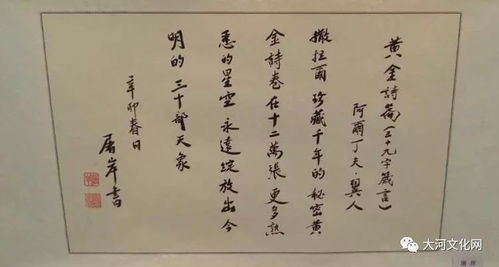 黄金詩篇(三十九字箴言)
阿爾丁夫·翼人
撒拉爾 珍藏千年的秘密黄
金詩卷 在十二萬張 更多熟
悉的星空 永遠綻放出今
明的三十部天象
辛卯春日
屠岸書
大河文化网